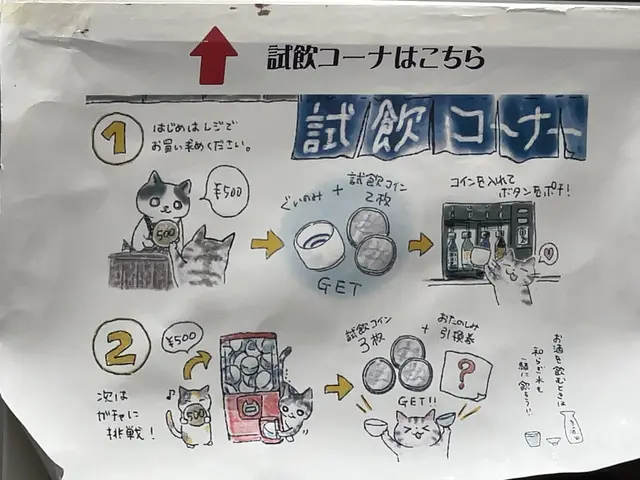 試飲コーナーはこちら
試飲コーナー
1
はじめはレジで
お買い求めください。
¥500
500
ぐいのみ
+
試飲コイン
2枚
GET
コインを入れて
ボタンをポチ!
2
¥500
500
次は
ガチャに
挑戦!
試飲コイン
3枚
+
おたのしみ
引換券
?
GET!!
お酒を飲むときは
和らぎ水も
一緒に飲もう!!